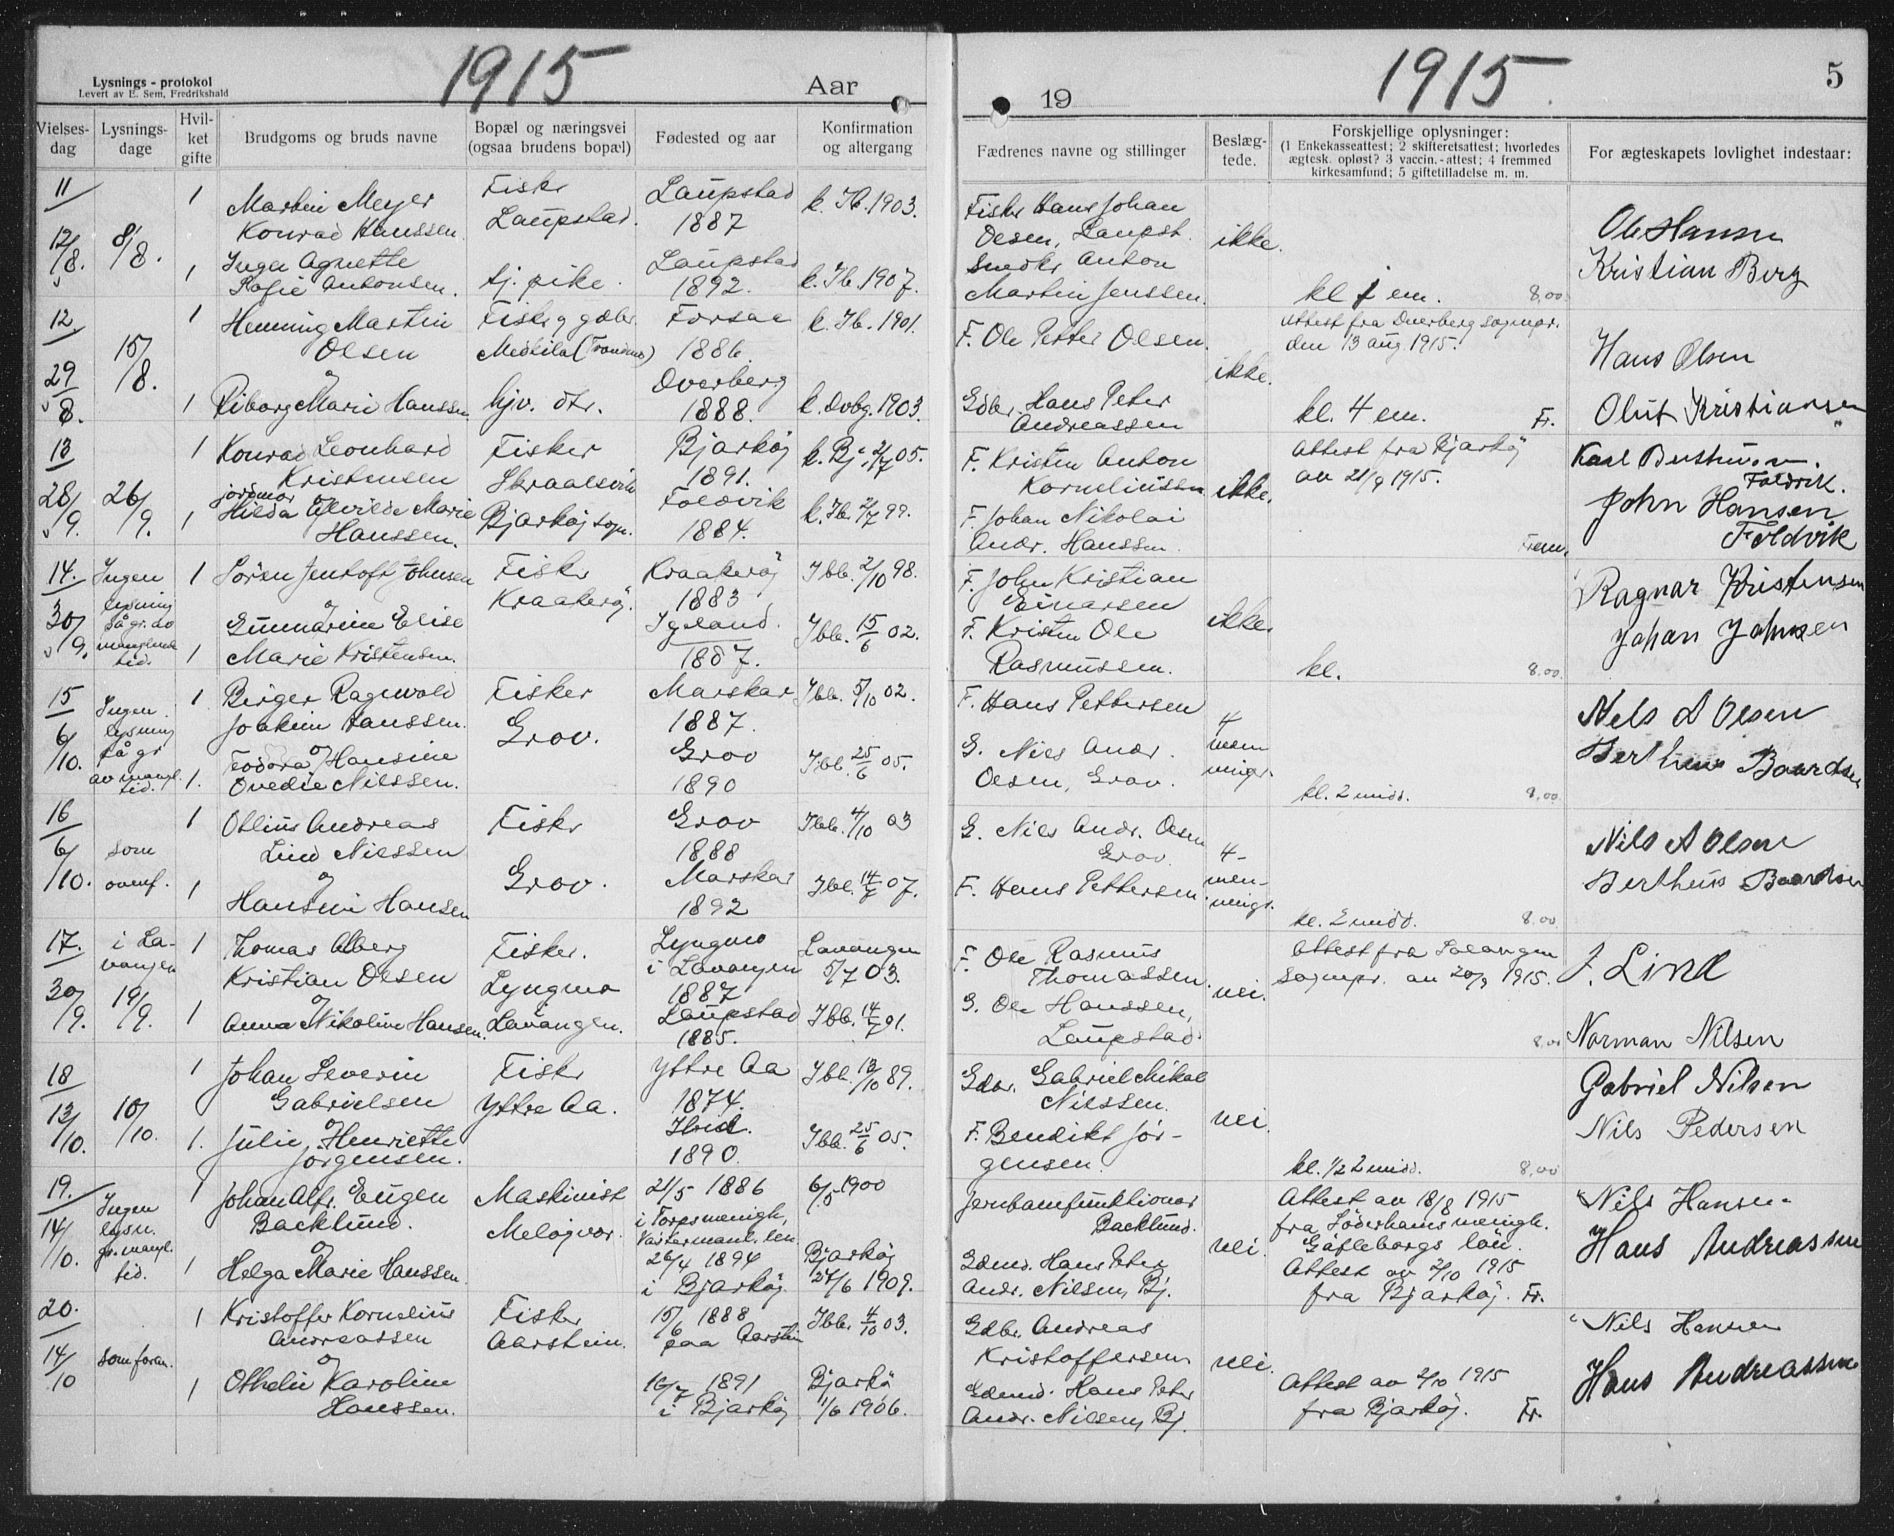 Lysnings-protokol
Levert av E. Sem, Fredrikshald
1915
Aar
19
1915
5
Vielses-dag
Lysnings-dage
Hvil-ket gifte
Brudgoms og bruds navne
Bopæl og næringsvei (ogsaa brudens bopæl)
Fødested og aar
Konfirmation og altergang
Fædrenes navne og stillinger
Beslæg-tede.
Forskjellige oplysninger:
(1 Enkekasseattest; 2 skifteretsattest; hvorledes
ægtesk. opløst? 3 vaccin.-attest; 4 fremmed
kirkesamfund; 5 giftetilladelse m. m.
For ægteskapets lovlighet indestaar:
11
12/8.
8/8.
1
Martin Meyer
Konrad Hanssen.
Fisker
Laupstad.
Laupstad
1887
k. Ib. 1903.
Fisker Hans Johan
Olsen, Laupst.
ikke.
Ole Hansen
1
Inga Agnette
Sofie Antonsen.
tj. pike.
Laupstad
1892.
k. Ib. 1907.
Anton
Martin Jenssen.
kl. 1 em.
8,00
Kristian Berg
12
29/8.
15/8.
1
Henning Martin
Olsen
og
Fisker og gdbr.
Medkila (Trondenes)
Forsaa
1886.
k. Ib. 1901.
F. Ole Petter Olsen.
ikke.
Attest fra Dverberg sognepr.
den 13 aug. 1915.
Hans Olsen
1
Marie Hanssen
hjv. dtr.
Dverberg
1888.
k. Dvbg. 1903.
Gdbr. Hans Peter
Andreassen
kl. 4 em.
Fr.
Oluf Kristiansen
13
28/9.
26/9.
1
Konrad Leonhard
Kristensen
Fisker
Bjarkøj
1891.
k. Bj. 2/7 05.
F. Kristen Anton
Korneliussen
ikke.
Attest fra Bjarkøj
av 21/9 1915.
Foldvik.
1
jordmor
Hilda Marie
Hanssen.
Bjarkøj sogn.
Foldvik
1884.
k. Ib. 2/7 99.
F. Johan Nikolai
Andr. Hanssen.
Frem.
John Hansen
Foldvik
14.
30/9.
Ingen
lysning
på gr. av
manglende
tid.
1
Søren Jentoft Johnsen
og
Fisker
Kraakerøj
Kraakerøj
1883
Ibb. 2/10 98.
F. John Kristian
Einarsen
ikke.
Ragnar Kristensen
1
Gunnarine Elise
Marie Kristensen.
Igeland.
1887.
Ibb. 15/6 02.
F. Kristen Ole
Rasmussen.
kl.
8.00
Johan Johnsen
15
6/10.
Ingen
lysning
på gr
av mangl.
tid.
1
Birger Ragnvald
Joakim Hanssen.
og
Fisker
Grov.
Marskar
1887.
Ibb. 5/10 02.
F. Hans Pettersen
4
men
ninger.
Nils A Olsen
1.
Fodora Hansine
Ovedie Nilssen.
Grov
1890
Ibb. 25/6 05.
G. Nils Andr.
Olsen, Grov.
kl. 2 midd.
8,00
Berthus Baardsen
16
6/10.
som
ovenf.
1
Otlius Andreas
Lind Nilssen
og
Fisker
Grov.
Grov
1888
Ibb. 4/10 03
G. Nils Andr. Olsen
Grov.
4-
men-
nings.
Nils A Olsen
1
Hansine Hansen
Marskar
1892
Ibb. 14/7 07.
F. Hans Pettersen
kl. 2 midd.
8.00
Berthus Baardsen
17.
30/9.
i La-
vangen
19/9.
1
Thomas Alberg
Kristian Olsen
og
Fisker.
Lyngmo
Lavangen.
Lyngmo
i Lavangen
1887
Lavangen
5/7 03.
F. Ole Rasmus
Thomassen.
nei.
Attest fra Salangen
sognepr. av 20/9 1915.
J. Lind
1
Anna Nikoline Hansen.
Laupstad
1885.
Ibb. 14/7 01.
G. Ole Hanssen,
Laupstad
8,00
Norman Nilsen
18
13/10.
10/10.
1
Johan Severin
Gabrielsen
og
Fisker
Yttre Aa.
Yttre Aa
1874.
Ibb. 13/10 89.
Gdbr. Gabriel Mikal
Nilssen.
nei.
Gabriel Nilsen
1.
Julie, Henriette
Jørgensen.
Ibid.
1890.
Ibb. 25/6 05.
F. Bendikt Jør-
gensen.
kl. 1/2 2 midd.
8,00
Nils Pedersen
19.
14/10.
Ingen
lysn.
gr. mangl.
tid.
1
Johan Alfr. Eugen
Backlund.
og
Maskinist
Meløjvær.
21/5 1886
i Torpsmenigh,
Västermanl. len
6/5 1900
Jernbanefunktionær
Backlund.
nei.
Attest av 18/8 1915
fra Söderhamsmenigh.
Gäfleborgs län.
"Nils Hansen
1
Helga Marie Hanssen.
26/4 1894
i Bjarkøj
Bjarkøj
27/6 1909.
Gdmd. Hans Peter
Andr. Nilsen, Bj.
Attest av 2/10 1915
fra Bjarkøj.
Fr.
Hans Andreassen
20.
14/10
som foran.
1
Kristoffer Kornelius
Andreassen
og
Fisker
Aarstein.
15/6 1888
paa Aarstein
Ibb. 4/10 03.
Gdbr. Andreas
Kristoffersen
nei.
"Nils Hansen
1
Othelie Karoline
Hanssen.
16/7 1891
i Bjarkøj
Bjarkøj
1/6 1906.
Gdmd. Hans Peter
Andr. Nilsen, Bj.
Attest av 2/10 1915
fra Bjarkøj.
Fr.
Hans Andreassen